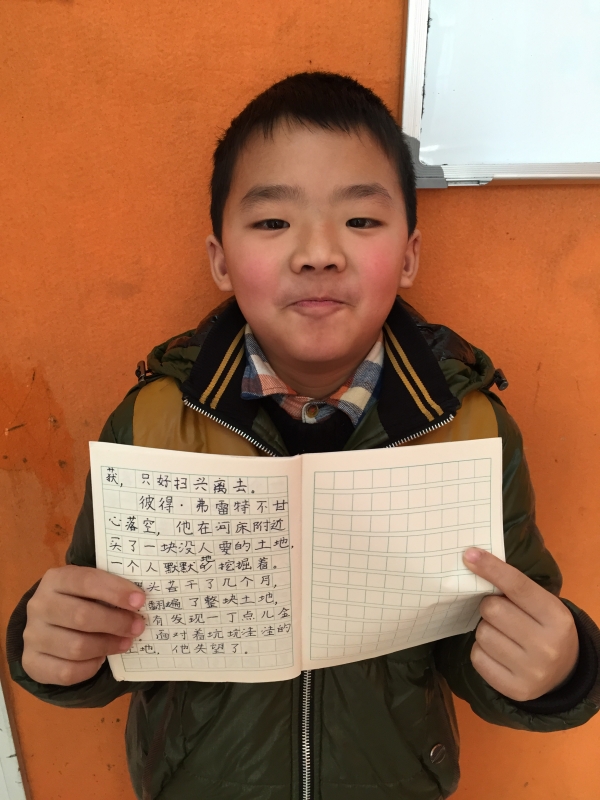 获，只好扫兴离去。
彼得·弗雷特不甘
心落空，他在河床附近
买了一块没人要的土地，
一个人默默地挖掘着。
头苦干了几个月，
翻遍了整块土地，
有发现一丁点儿金
面对着坑坑洼洼的
土地，他失望了。